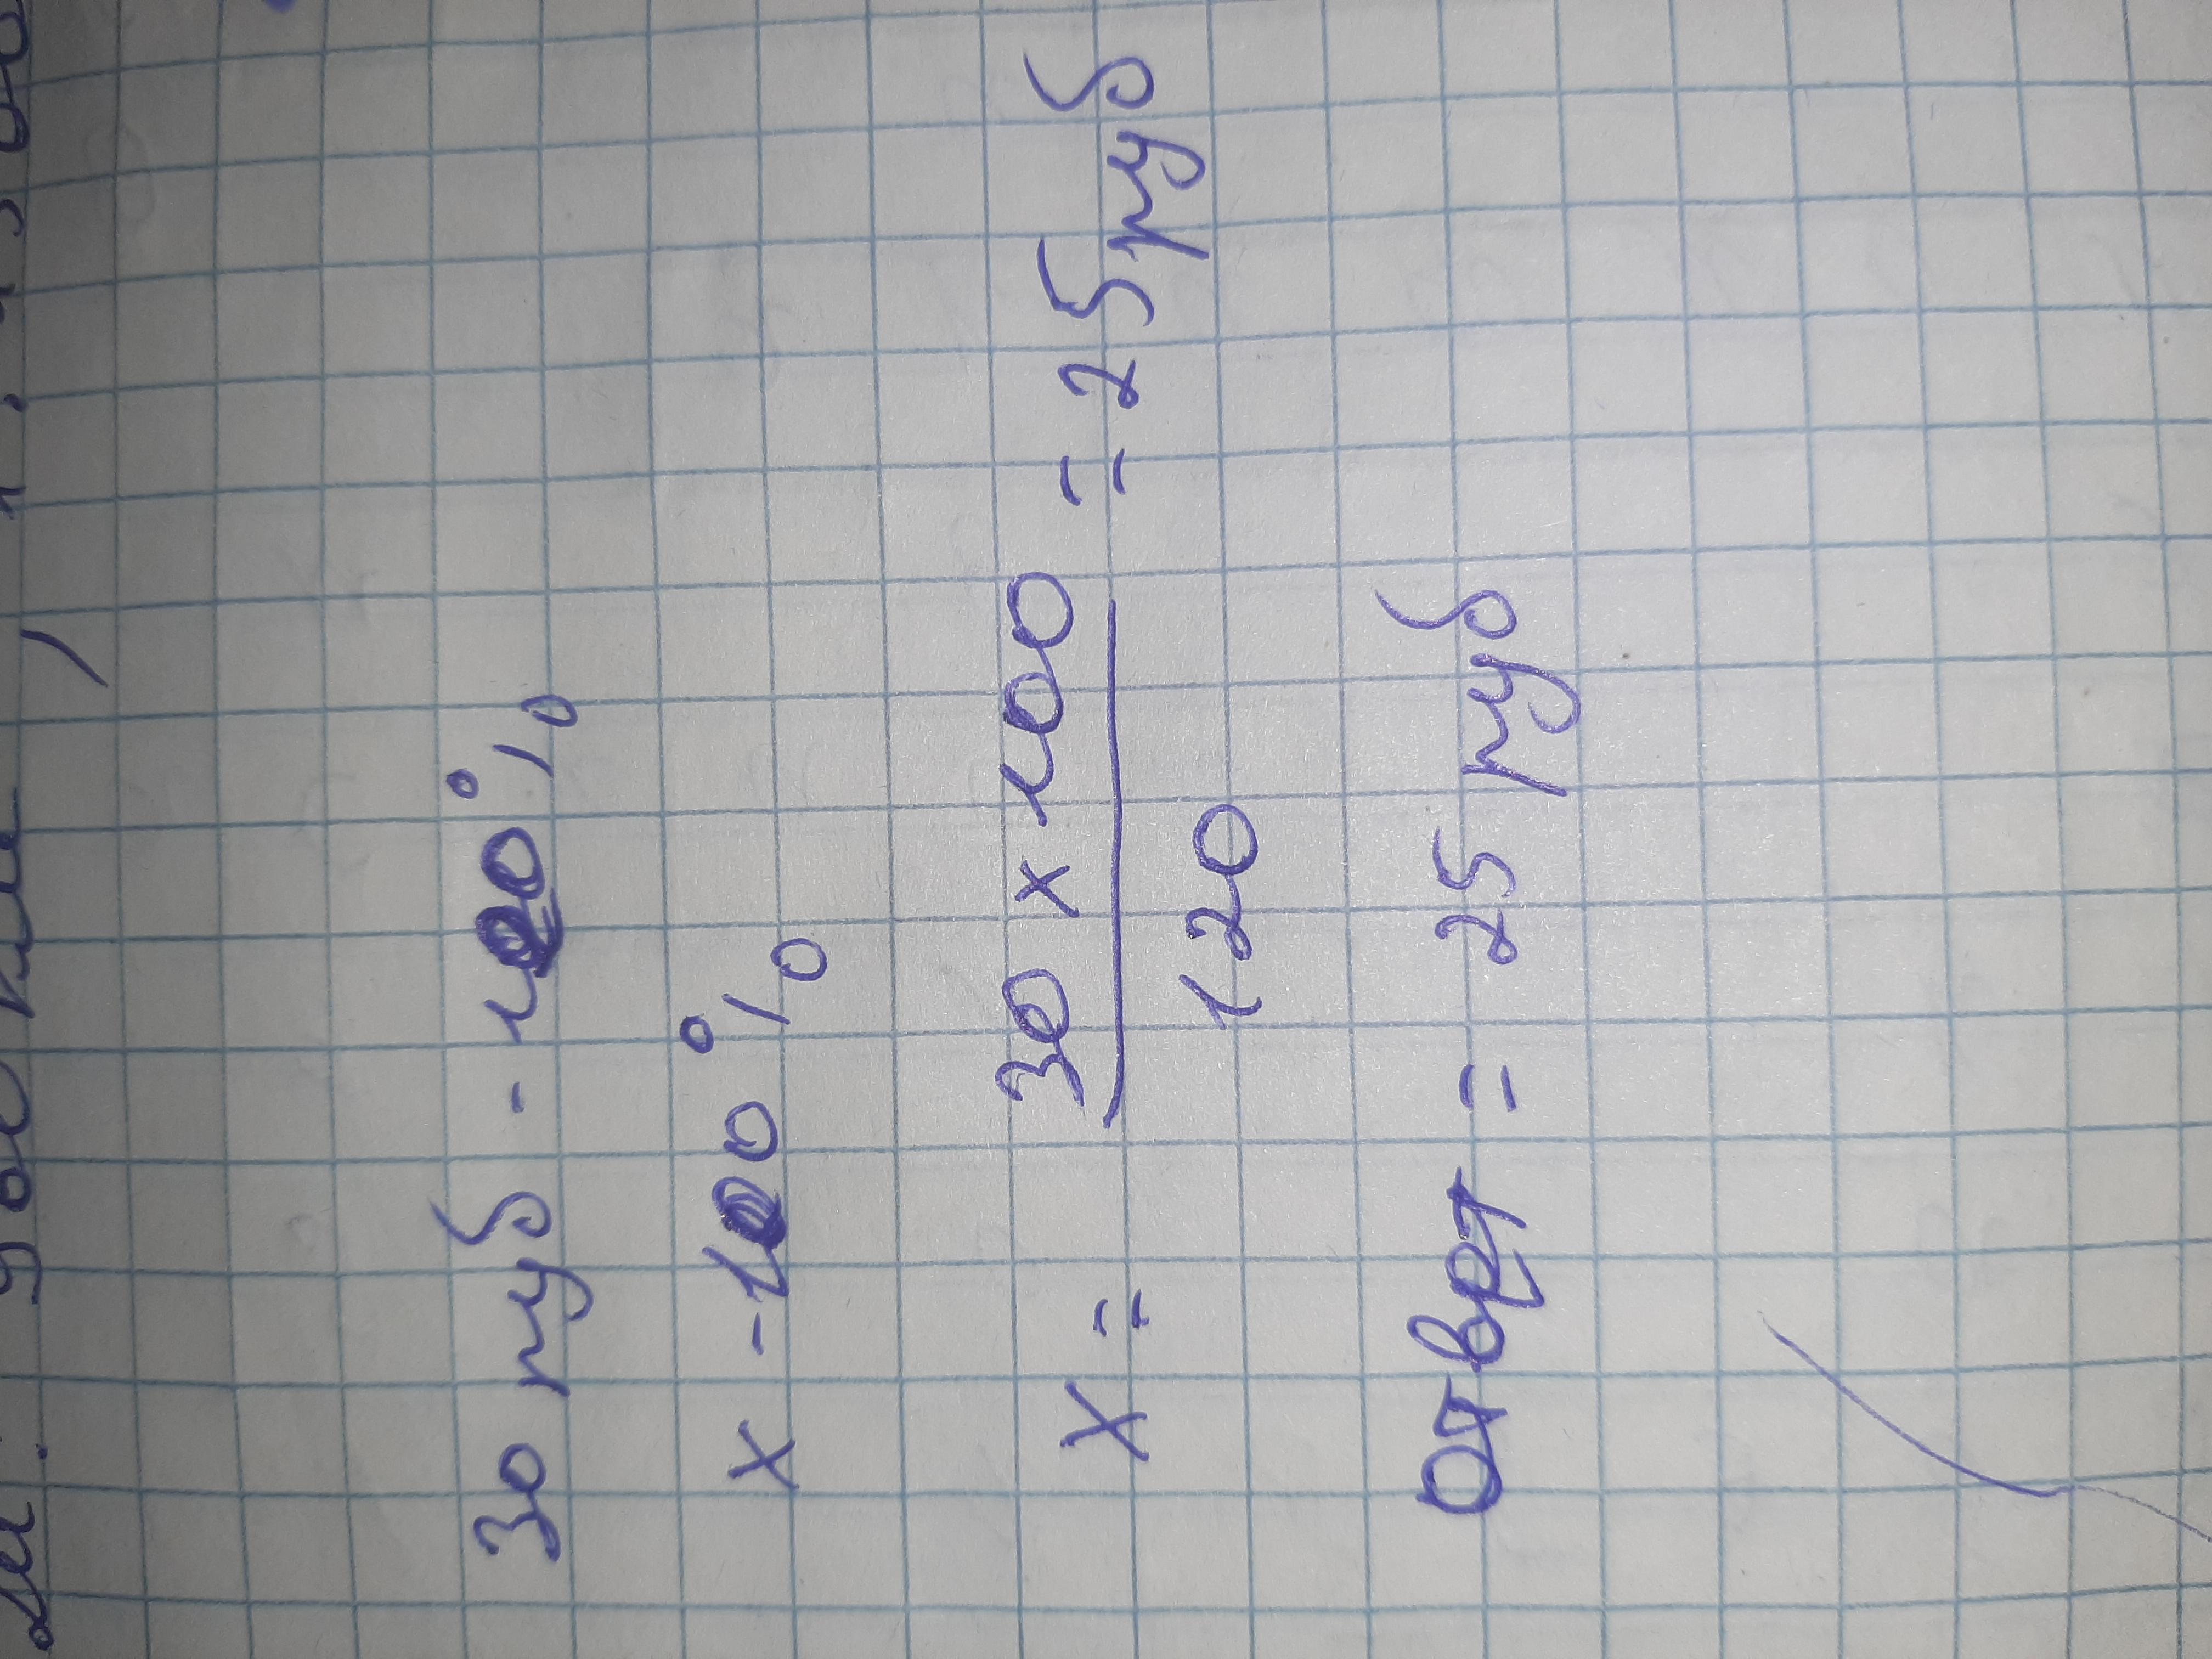 30 руб - 120%
х - 100%
х = 30 х 100 = 25 руб
120
Ответ = 25 руб